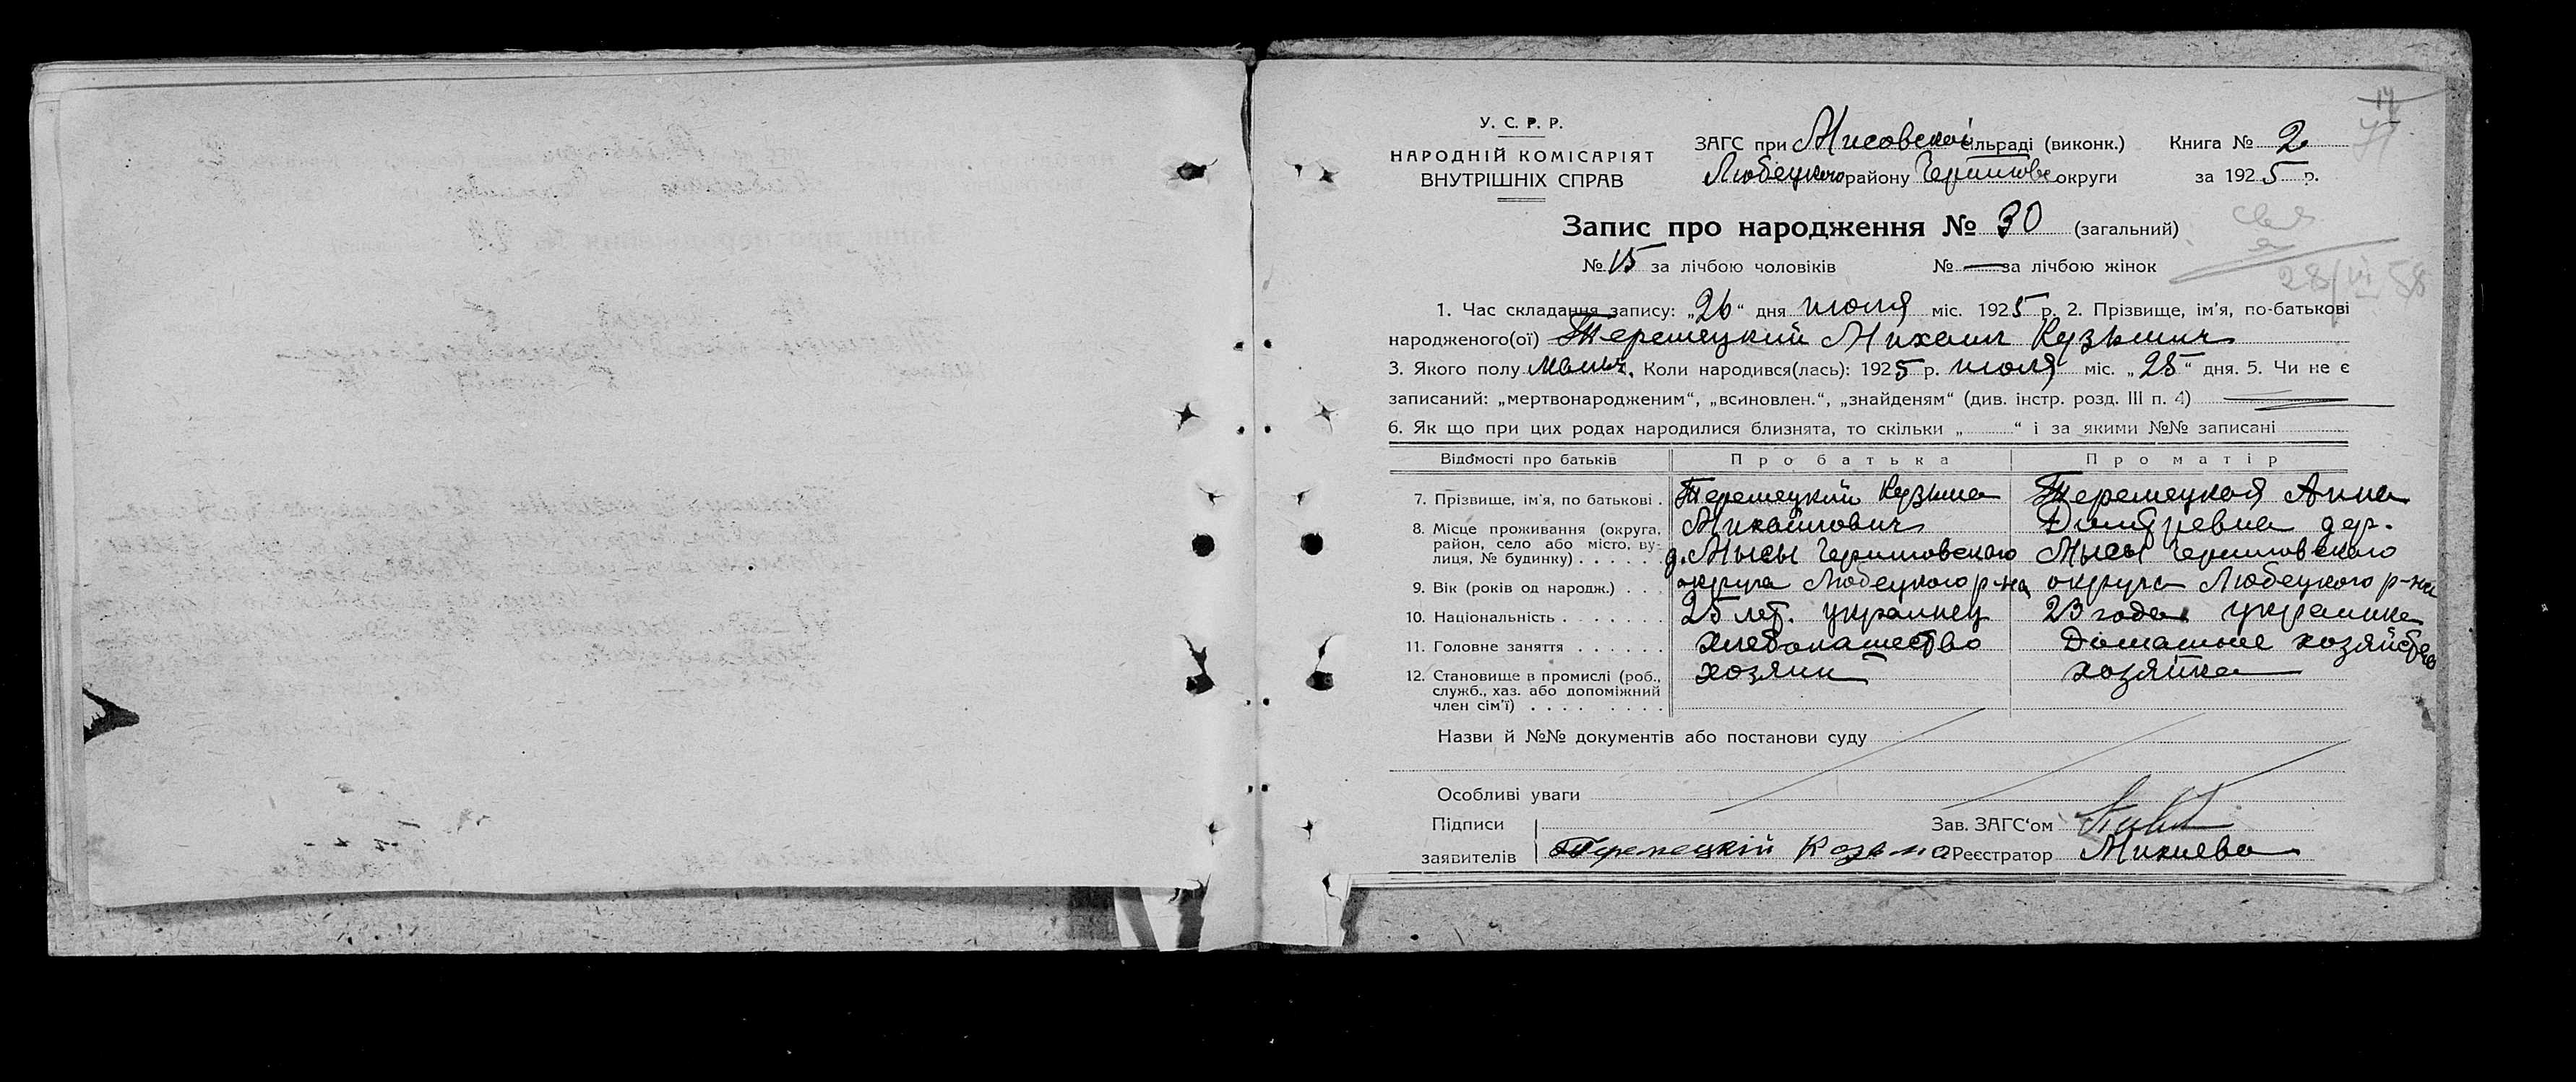 У. С. Р. Р.
НАРОДНІЙ КОМІСАРІЯТ
ВНУТРІШНІХ СПРАВ
ЗАГС при Мисовской сільраді (виконк.) Книга № 2
Любецкого району Чернигове округи за 1925 р.
Запис про народження № 30 (загальний)
№ 15 за лічбою чоловіків № — за лічбою жінок
28/VI 58
1. Час складання запису: „26“ дня июля міс. 1925 р. 2. Прізвище, ім'я, по-батькові
народженого(ої) Теремецкий Михаил Кузьмич
3. Якого полу мальч. Коли народився(лась): 1925 р. июля міс. „25“ дня. 5. Чи не є
записаний: „мертвонародженим“, „всиновлен.“, „знайденям“ (див. інстр. розд. III п. 4)
6. Як що при цих родах народилися близнята, то скільки „ “ і за якими №№ записані
Відомості про батьків Про батька Про матір
7. Прізвище, ім'я, по батькові . Теремецкий Кузьма Теремецкая Анна
8. Місце проживання (округа, Михайлович Дмитревна дер.
район, село або місто, ву-
лиця, № будинку) . . . . . д. Мысы Черниговского Мысы Черниговского
9. Вік (років од народж.) . . . округа Любецкого р-на округа Любецкого р-на
10. Національність . . . . . . . 25 лет. украинец 23 года украинка
11. Головне заняття . . . . . . хлебопашество Домашнее хозяйство
12. Становище в промислі (роб., хозяин хозяйка
служб., хаз. або допоміжний
член сім'ї) . . . . . . . .
Назви й №№ документів або постанови суду
Особливі уваги
Підписи Зав. ЗАГС'ом
заявителів Теремецкій Козьма Реєстратор Михиева